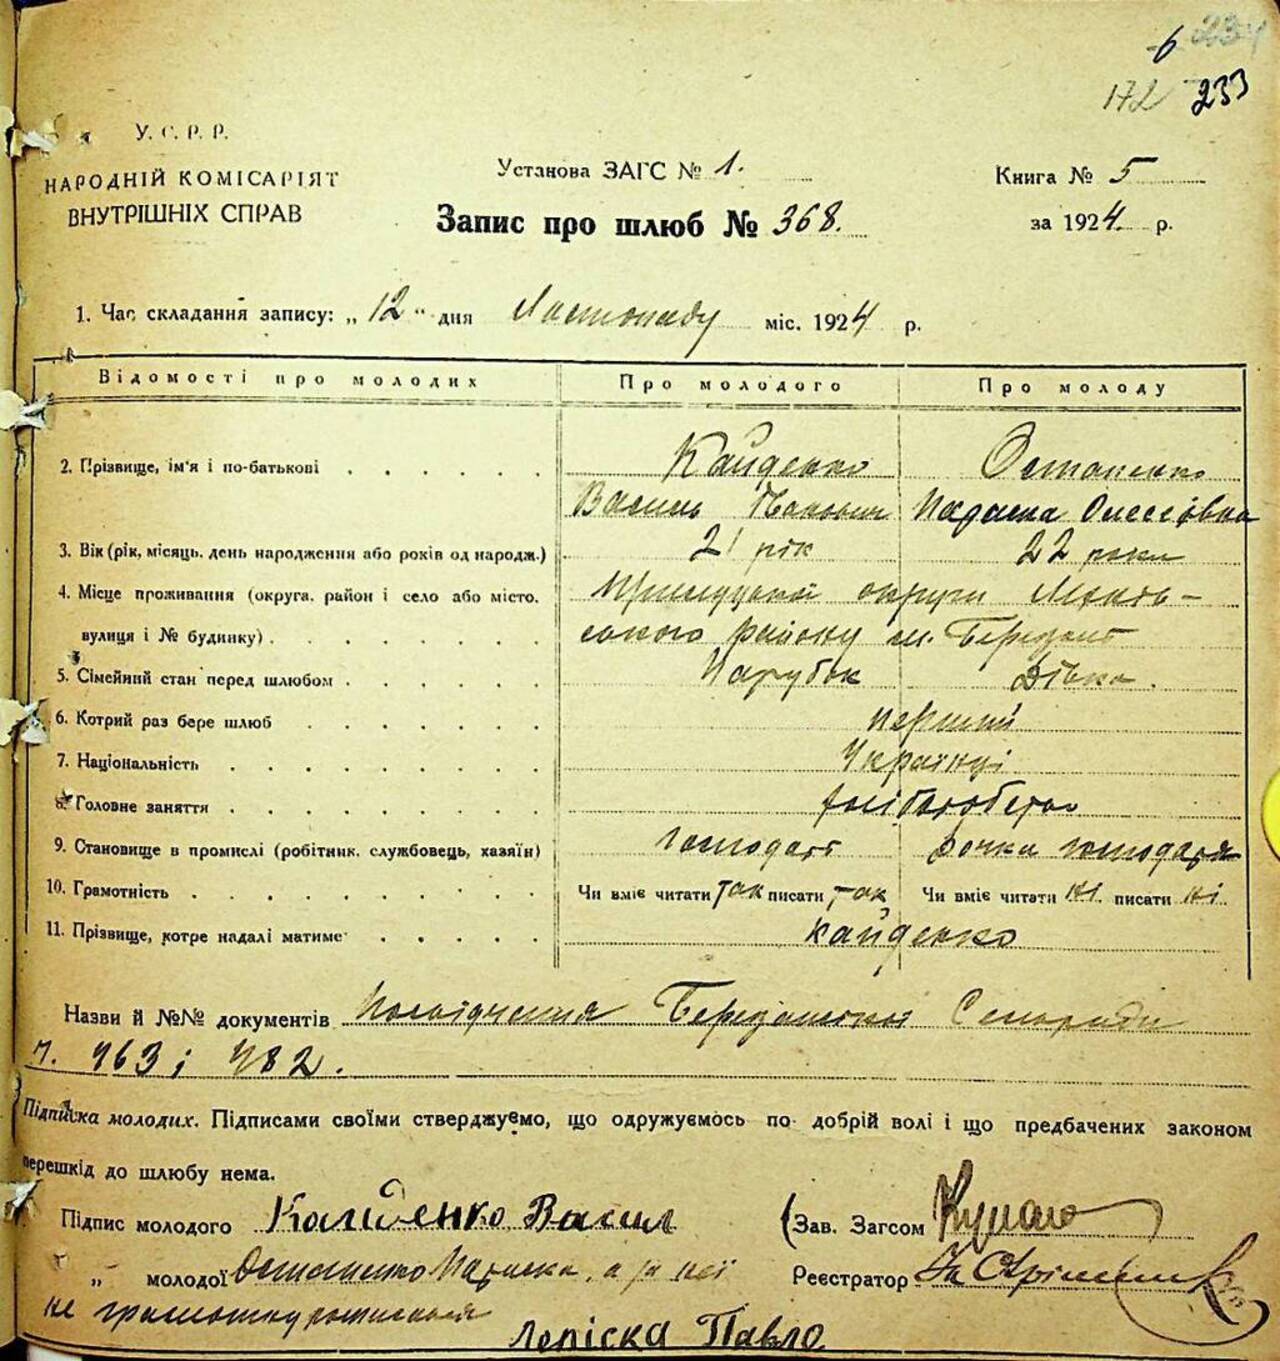 6 234
172 233
У. С. Р. Р.
НАРОДНІЙ КОМІСАРІЯТ
ВНУТРІШНІХ СПРАВ
Установа ЗАГС № 1.
Книга № 5
Запис про шлюб № 368.
за 1924 р.
1. Час складання запису: „12" дня Листопаду міс. 1924 р.
Відомості про молодих Про молодого Про молоду
2. Прізвище, ім'я і по-батькові Кайденко Остапенко
Василь Іванович Параска Олексіївна
3. Вік (рік, місяць, день народження або років од народж.) 21 рік 22 роки
4. Місце проживання (округа, район і село або місто, Прилуцької округи
вулиця і № будинку) ського району м. Березань
5. Сімейний стан перед шлюбом Парубок Дівка.
6. Котрий раз бере шлюб перший
7. Національність Українці
8. Головне заняття хліборобство
9. Становище в промислі (робітник, службовець, хазяїн) господарь дочка господаря
10. Грамотність Чи вміє читати так писати так Чи вміє читати ні писати ні.
11. Прізвище, котре надалі матиме Кайденко
Назви й №№ документів Посвідчення Березанської Сельради
ч. 963 і 982.
Підписка молодих. Підписами своїми стверджуємо, що одружуємось по добрій волі і що предбачених законом
перешкід до шлюбу нема.
Підпис молодого Кайденко Васил (Зав. Загсом
„ молодої Остапенко Параска, а за неї Реєстратор
не грамотну росписався
Лепіска Павло